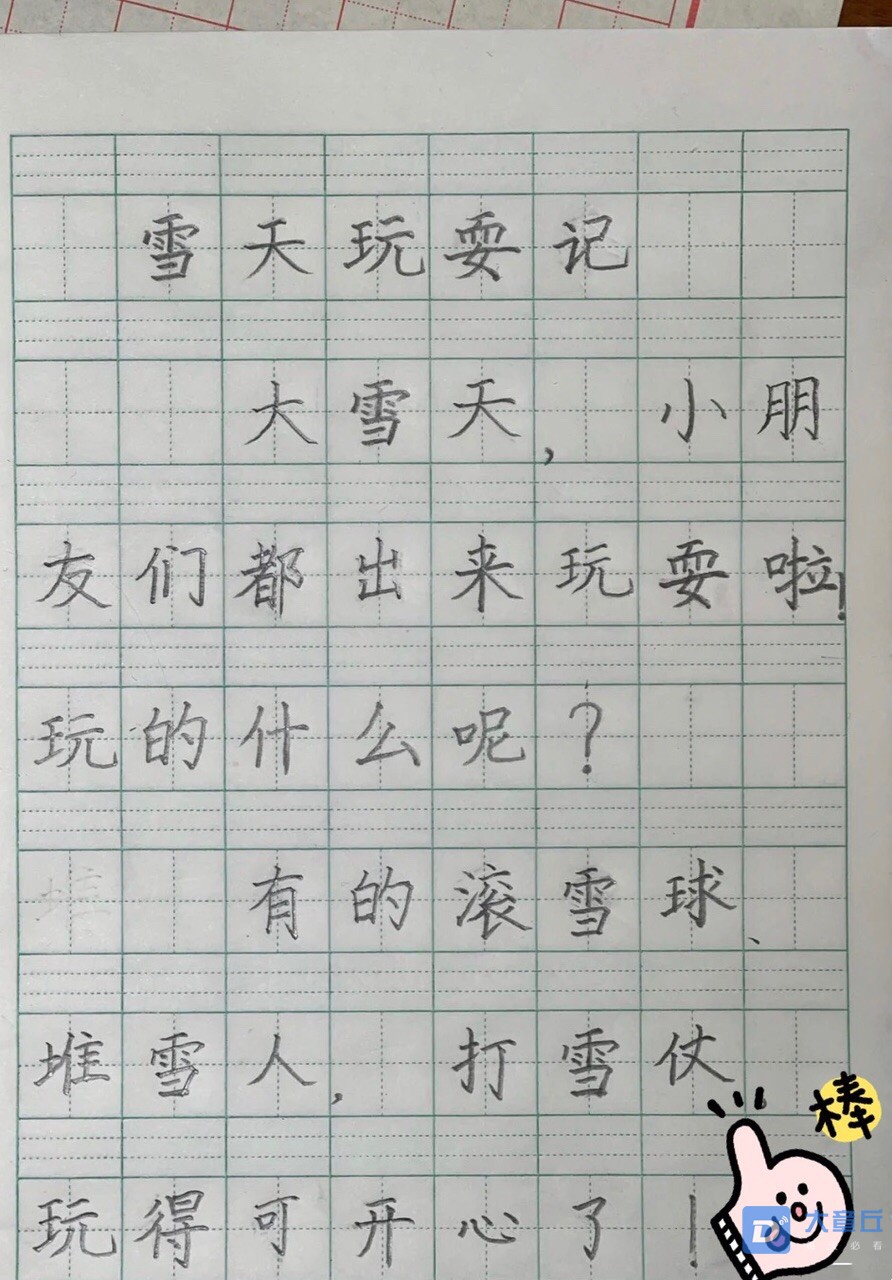 雪天玩耍记
大雪天，小朋
友们都出来玩耍啦！
玩的什么呢？
有的滚雪球、
堆雪人，打雪仗
玩得可开心了！
棒
大章丘
必看